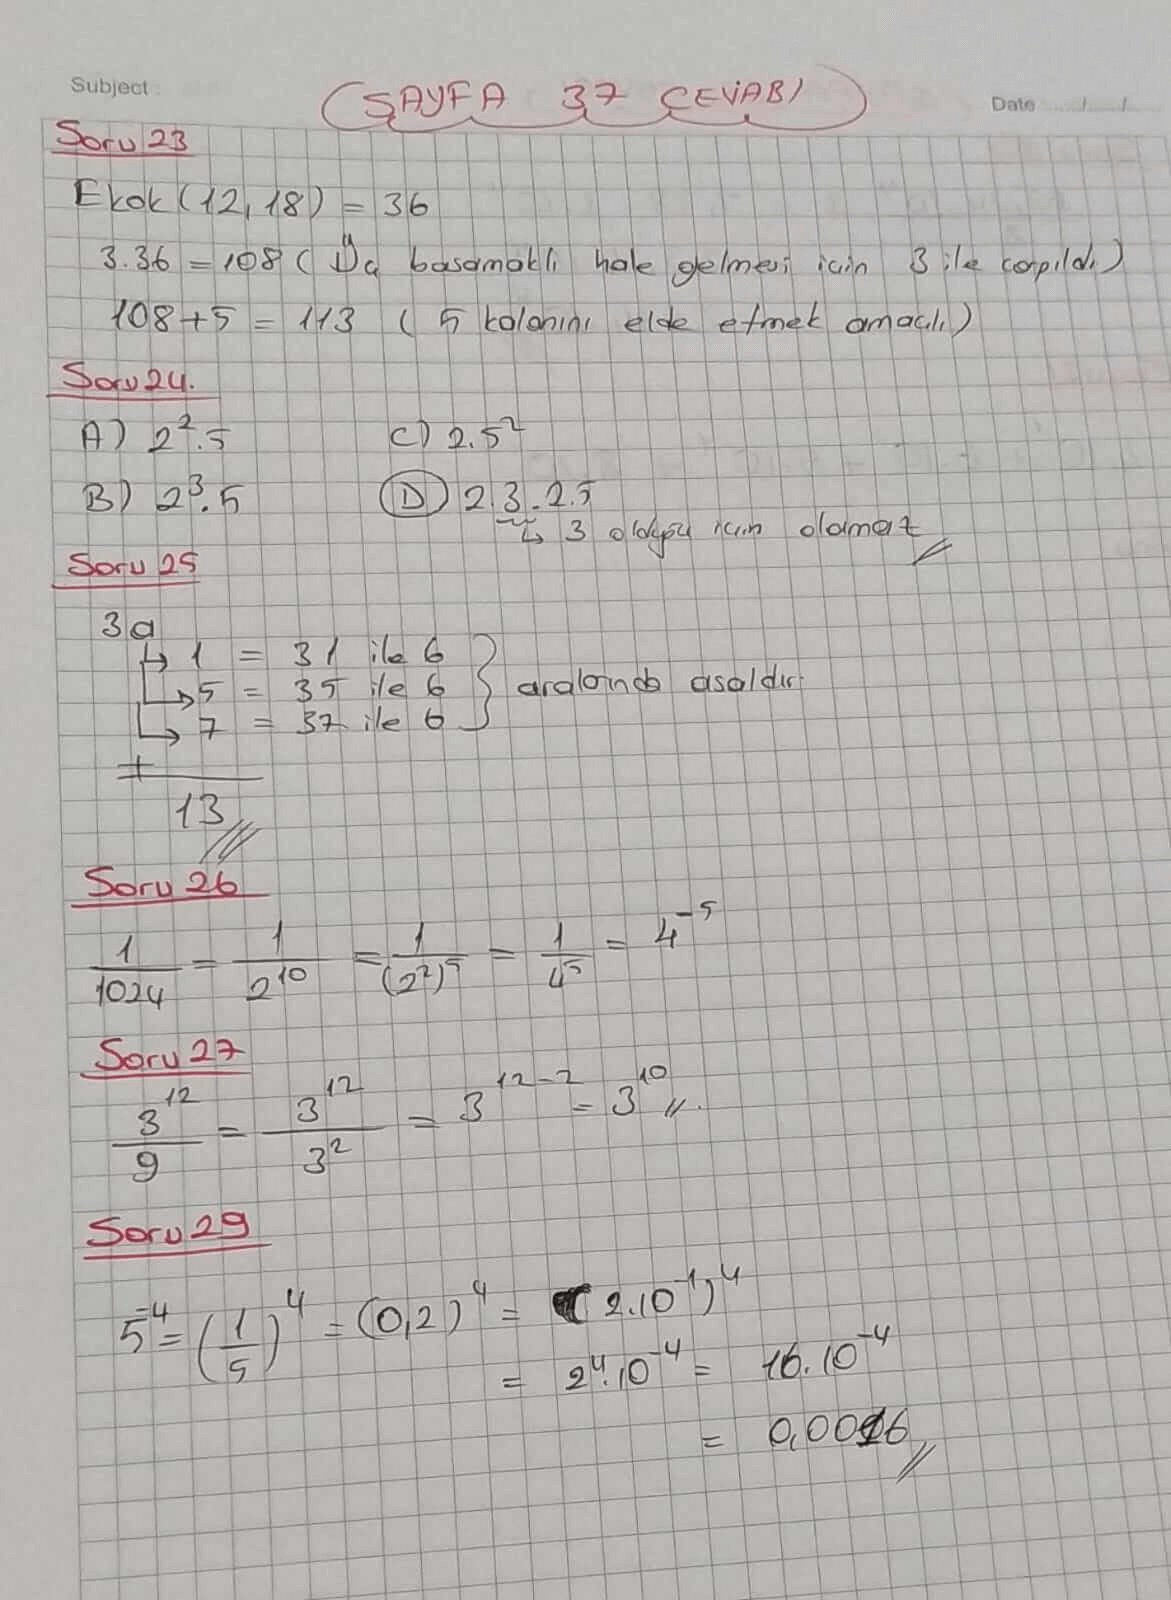 Subject :
SAYFA 37 CEVABI
Date ..../..../....
Soru 23
Ekok (12, 18) = 36
3.36 = 108 ( Üç basamaklı hale gelmesi için 3 ile çarpıldı)
108 + 5 = 113 ( 5 kalanını elde etmek amaçlı)
Soru 24.
A) 2².5 C) 2.5²
B) 2³.5 D) 2.3.2.5
↳ 3 olduğu için olamaz
Soru 25
3a
↳ 1 = 31 ile 6
↳ 5 = 35 ile 6 } aralarında asaldır.
↳ 7 = 37 ile 6
+
13
Soru 26
1/1024 = 1/2¹⁰ = 1/(2²)⁵ = 1/4⁵ = 4⁻⁵
Soru 27
3¹²/9 = 3¹²/3² = 3¹²⁻² = 3¹⁰ //.
Soru 29
5⁻⁴ = (1/5)⁴ = (0,2)⁴ = (2.10⁻¹)⁴
= 2⁴.10⁻⁴ = 16.10⁻⁴
= 0,0016